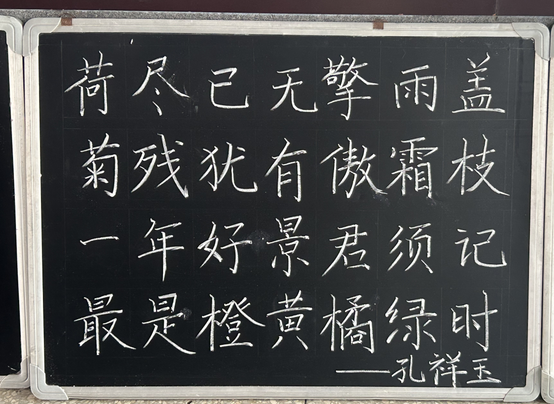 荷尽已无擎雨盖
菊残犹有傲霜枝
一年好景君须记
最是橙黄橘绿时
——孔祥玉